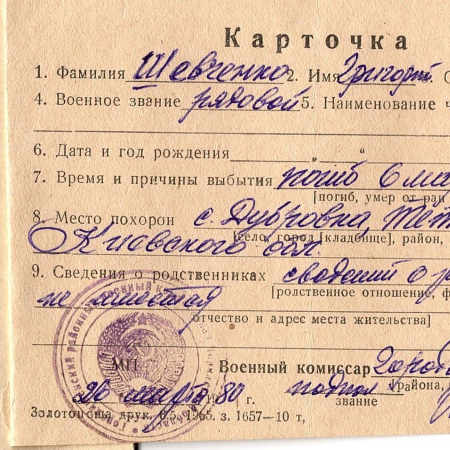 Карточка
1. Фамилия Шевченко 2. Имя Григорий
4. Военное звание рядовой 5. Наименование ч
6. Дата и год рождения „ “
7. Время и причины выбытия погиб 6 мар
[погиб, умер от ран
8. Место похорон с. Дубровка,
Киевского обл.
[село, город [кладбище], район,
9. Сведения о родственниках сведений о р
не имеется
[родственное отношение, ф
отчество и адрес места жительства]
МП Военный комиссар
26 марта 80 г. подпол
звание района,
Золотоноша друк. 6.5. 1965. з. 1657—10 т,